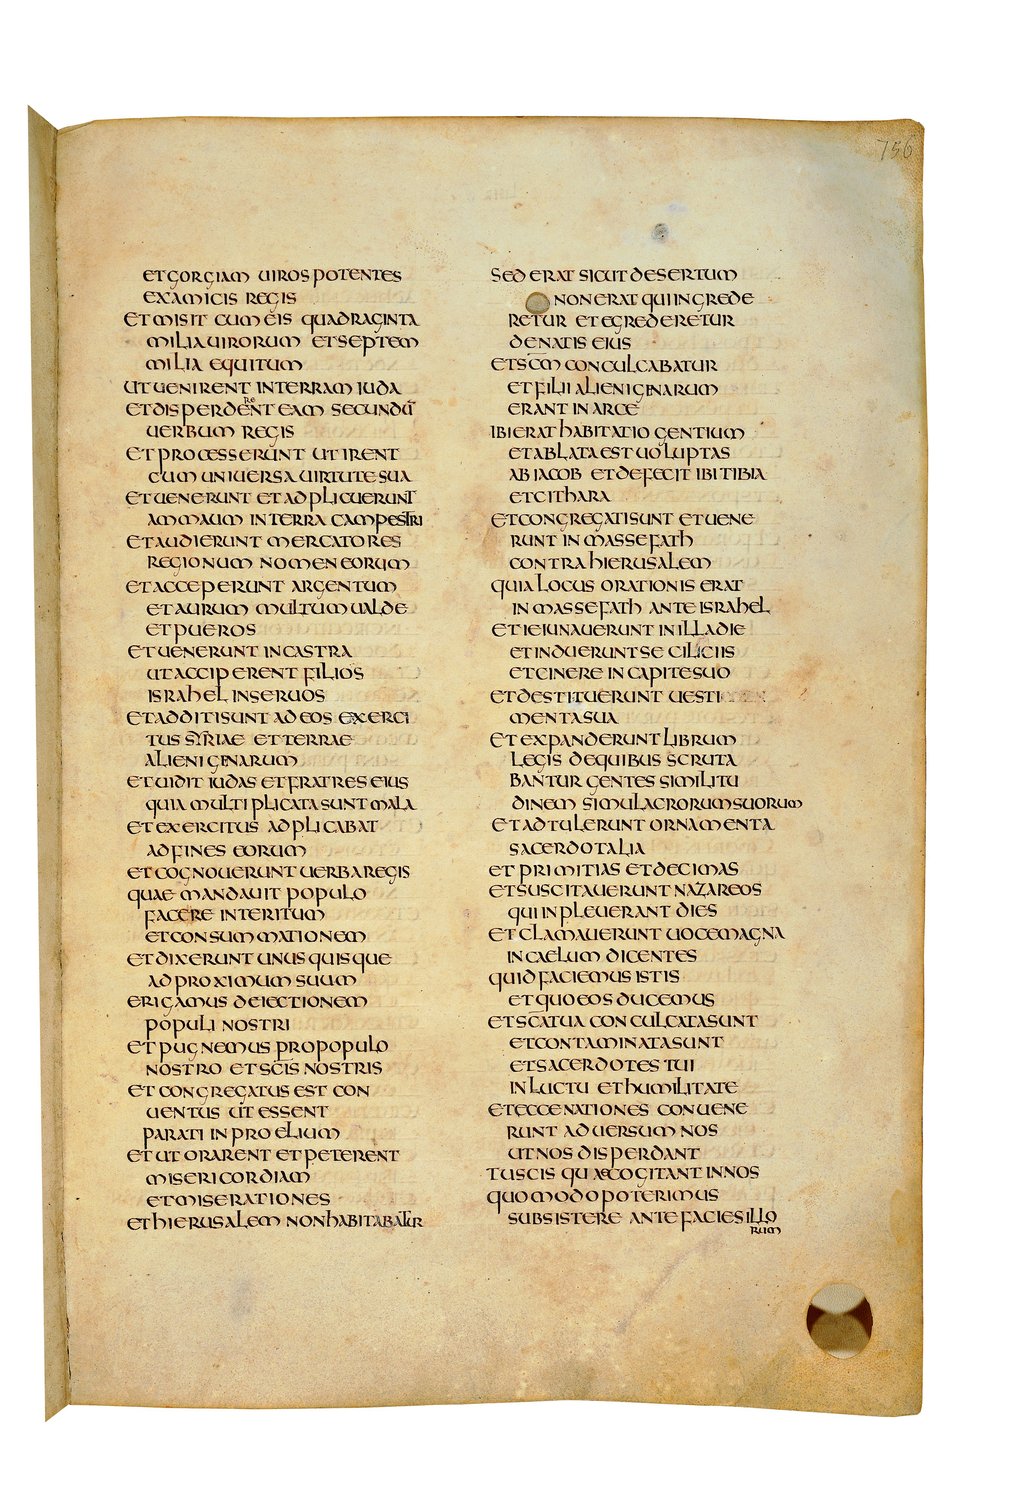 756
ET GORGIAM UIROS POTENTES
EX AMICIS REGIS
ET MISIT CUM EIS QUADRAGINTA
MILIA UIRORUM ET SEPTEM
MILIA EQUITUM
UT UENIRENT IN TERRAM IUDA
ET DISPERDERENT EAM SECUNDŪ
UERBUM REGIS
ET PROCESSERUNT UT IRENT
CUM UNIUERSA UIRTUTE SUA
ET UENERUNT ET ADPLICUERUNT
AMMAUM IN TERRA CAMPESTRI
ET AUDIERUNT MERCATORES
REGIONUM NOMEN EORUM
ET ACCEPERUNT ARGENTUM
ET AURUM MULTUM UALDE
ET PUEROS
ET UENERUNT IN CASTRA
UT ACCIPERENT FILIOS
ISRAHEL IN SERUOS
ET ADDITI SUNT AD EOS EXERCI
TUS SYRIAE ET TERRAE
ALIENIGINARUM
ET UIDIT IUDAS ET FRATRES EIUS
QUIA MULTIPLICATA SUNT MALA
ET EXERCITUS ADPLICABAT
AD FINES EORUM
ET COGNOUERUNT UERBA REGIS
QUAE MANDAUIT POPULO
FACERE INTERITUM
ET CONSUMMATIONEM
ET DIXERUNT UNUSQUISQUE
AD PROXIMUM SUUM
ERIGAMUS DEIECTIONEM
POPULI NOSTRI
ET PUGNEMUS PRO POPULO
NOSTRO ET SC̄IS NOSTRIS
ET CONGREGATUS EST CON
UENTUS UT ESSENT
PARATI IN PROELIUM
ET UT ORARENT ET PETERENT
MISERICORDIAM
ET MISERATIONES
ET HIERUSALEM NON HABITABATUR
SED ERAT SICUT DESERTUM
NON ERAT QUI INGREDE
RETUR ET EGREDERETUR
DE NATIS EIUS
ET SC̄M CONCULCABATUR
ET FILII ALIENIGINARUM
ERANT IN ARCE
IBI ERAT HABITATIO GENTIUM
ET ABLATA EST UOLUPTAS
AB IACOB ET DEFECIT IBI TIBIA
ET CITHARA
ET CONGREGATI SUNT ET UENE
RUNT IN MASSEFATH
CONTRA HIERUSALEM
QUIA LOCUS ORATIONIS ERAT
IN MASSEFATH ANTE ISRAHEL
ET IEIUNAUERUNT IN ILLA DIE
ET INDUERUNT SE CILICIIS
ET CINERE IN CAPITE SUO
ET DESTITUERUNT UESTI
MENTA SUA
ET EXPANDERUNT LIBRUM
LEGIS DE QUIBUS SCRUTA
BANTUR GENTES SIMILITU
DINEM SIMULACRORUM SUORUM
ET ADTULERUNT ORNAMENTA
SACERDOTALIA
ET PRIMITIAS ET DECIMAS
ET SUSCITAUERUNT NAZAREOS
QUI INPLEUERANT DIES
ET CLAMAUERUNT UOCE MAGNA
IN CAELUM DICENTES
QUID FACIEMUS ISTIS
ET QUO EOS DUCEMUS
ET SC̄A TUA CONCULCATA SUNT
ET CONTAMINATA SUNT
ET SACERDOTES TUI
IN LUCTU ET HUMILITATE
ET ECCE NATIONES CONUENE
RUNT ADUERSUM NOS
UT NOS DISPERDANT
TU SCIS QUAE COGITANT IN NOS
QUOMODO POTERIMUS
SUBSISTERE ANTE FACIES ILLO
RUM